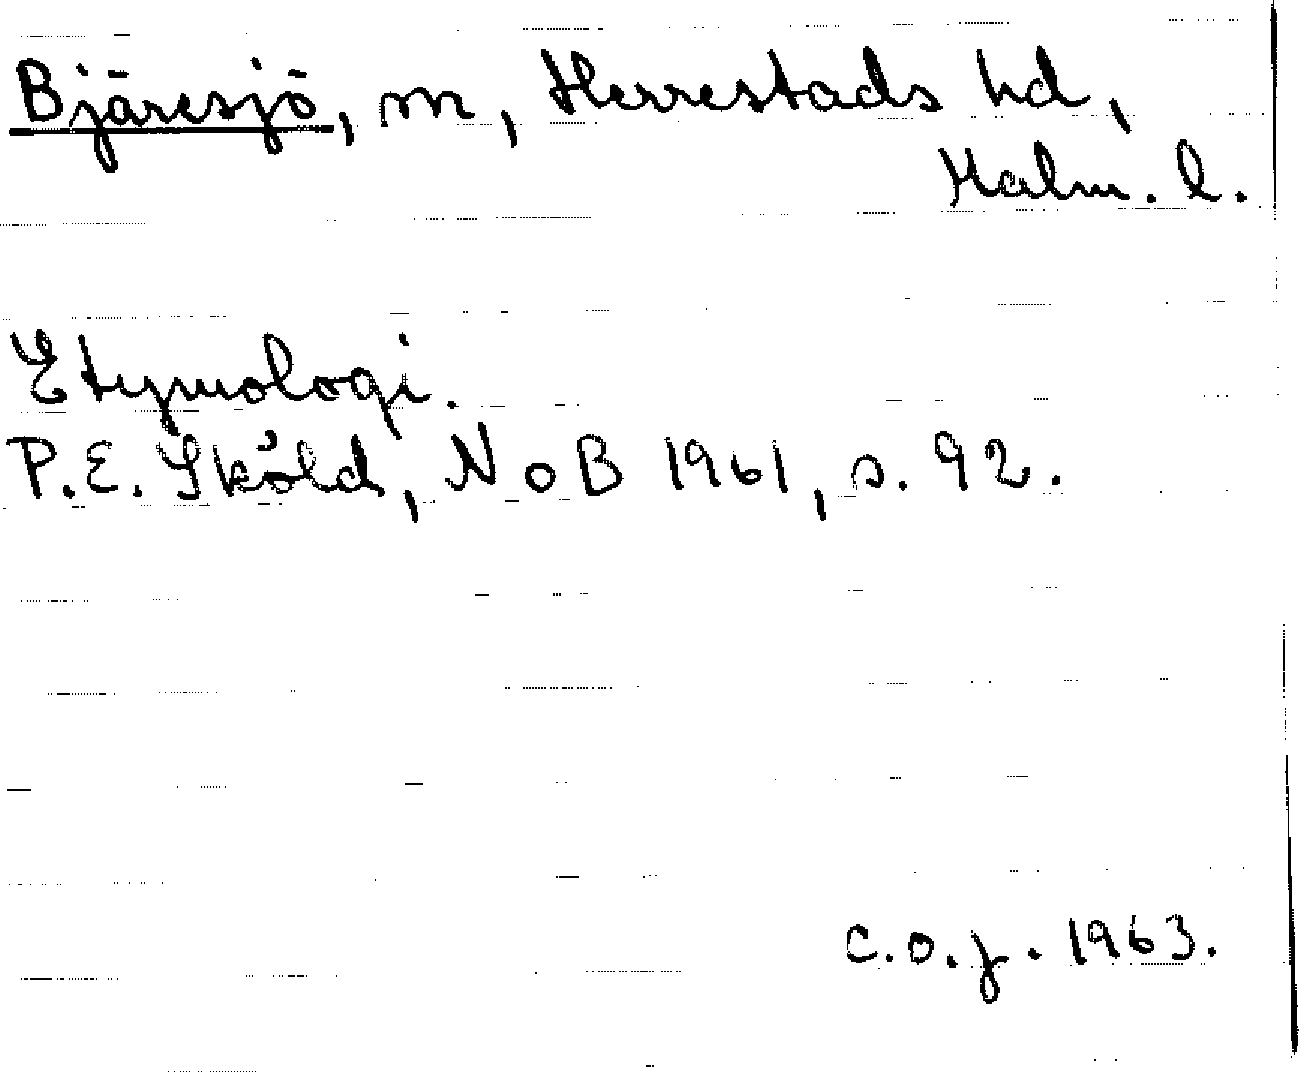 Bjäresjö, sn, Herrestads hd,
Malm. l.
Etymologi.
P.E. Sköld, NoB 1961, s. 92.
C.O.J. 1963.